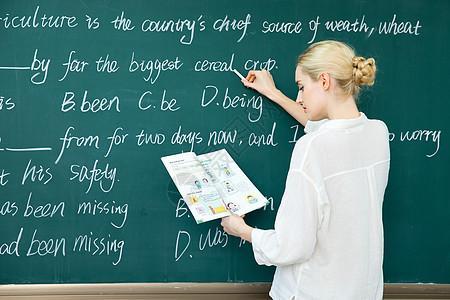 riculture is the country's chief source of weath, wheat
____ by far the biggest cereal crop.
s B.Been C.be D.Being
____ from for two days now, and I o worry
ut his safly.
as been missing B
ad been missing D. Was